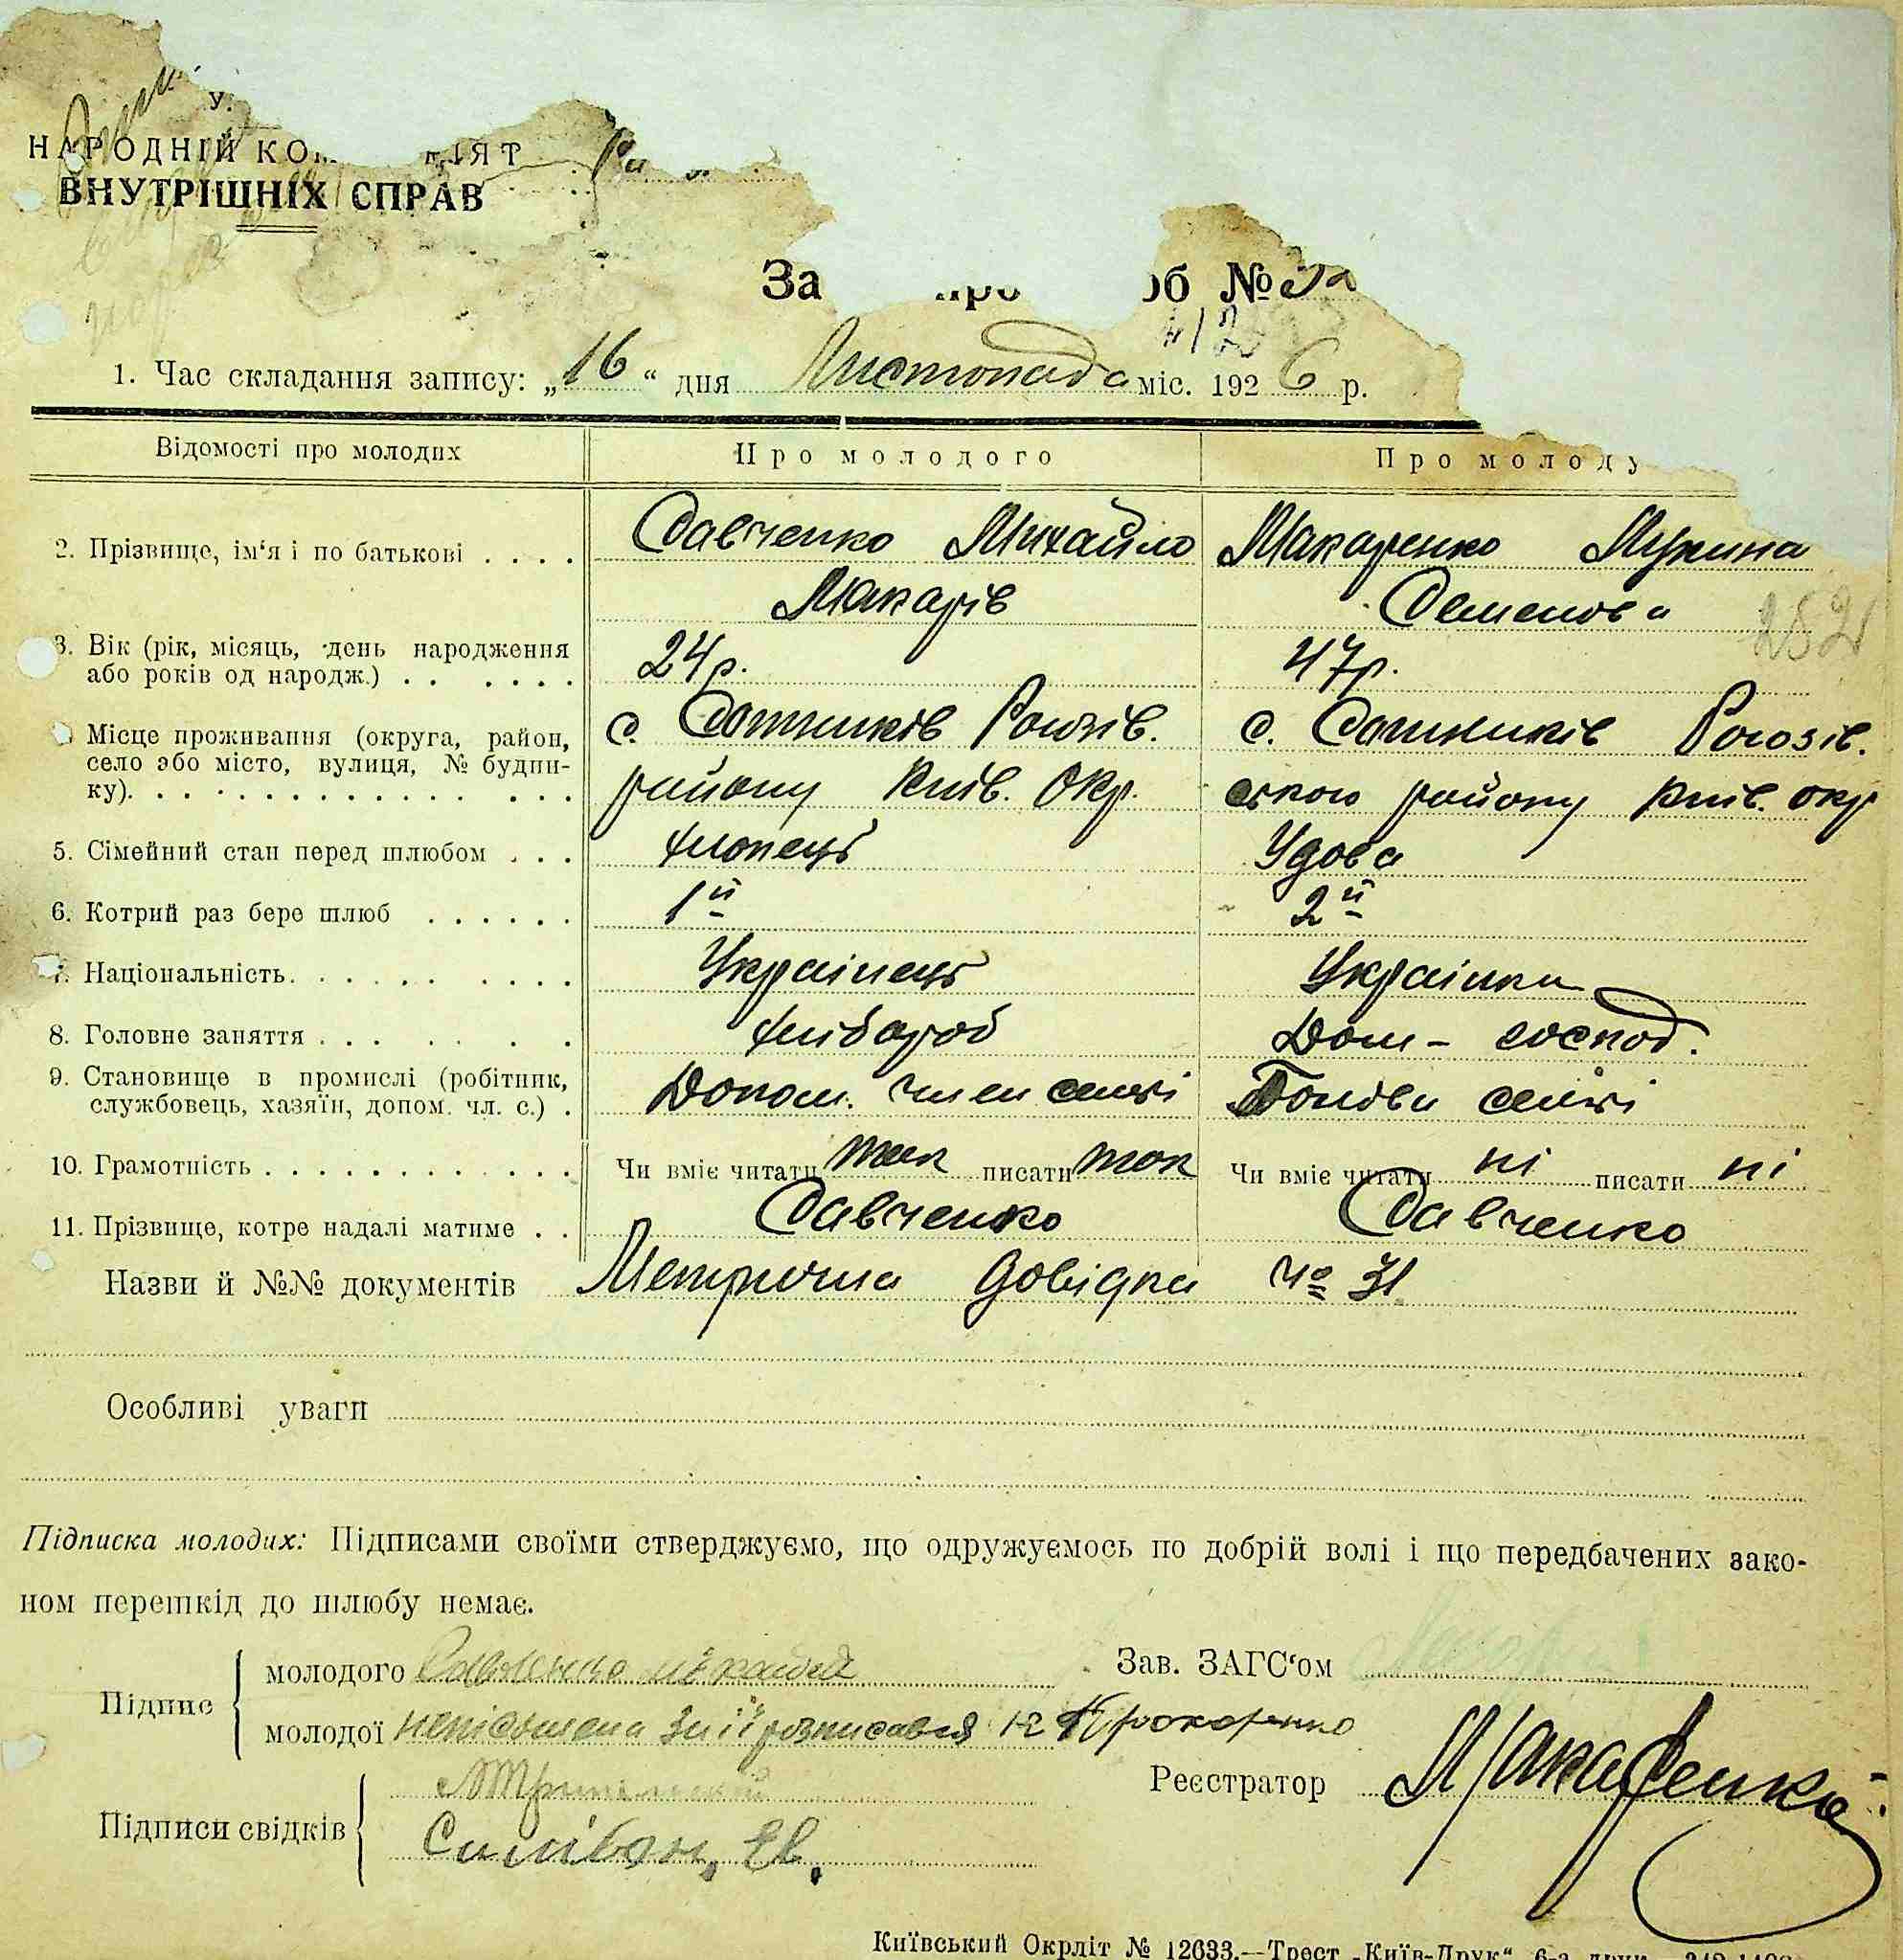 НАРОДНІЙ
ВНУТРІШНІХ СПРАВ
За №
412
1. Час складання запису: „16“ дня Листопада міс. 1926 р.
Відомості про молодих Про молодого Про молоду
2. Прізвище, ім‘я і по батькові . . . . Савченко Михайло Макаренко
Макарів Семенова
252
3. Вік (рік, місяць, день народження 24р. 47р.
або років од народж.) . . . . . .
Місце проживання (округа, район, с. Сотників Рогозів. с. Сотників Рогозів.
село або місто, вулиця, № будин-
ку). . . . . . . . . . . . . . . . району Київ. Окр. ського району Київ. окр
5. Сімейний стан перед шлюбом . . . хлопець Удова
6. Котрий раз бере шлюб . . . . . . 1й 2й
7. Національність. . . . . . . . . . Українець Українка
8. Головне заняття . . . . . . . хлібороб Дом – господ.
9. Становище в промислі (робітник, Допом. член семʼї Голова семʼї
службовець, хазяїн, допом. чл. с.) .
10. Грамотність . . . . . . . . . . . . Чи вміє читати так писати так Чи вміє читати ні писати ні
11. Прізвище, котре надалі матиме . . Савченко Савченко
Назви й №№ документів Метрична довідка № 31
Особливі уваги
Підписка молодих: Підписами своїми стверджуємо, що одружуємось по добрій волі і що передбачених зако-
ном перешкід до шлюбу немає.
Підпис молодого Савченко Зав. ЗАГС‘ом
молодої неписьмена за її розписався
Підписи свідків Реєстратор Макаренко
Київський Окрліт № 12633.—Трест „Київ-Друк“